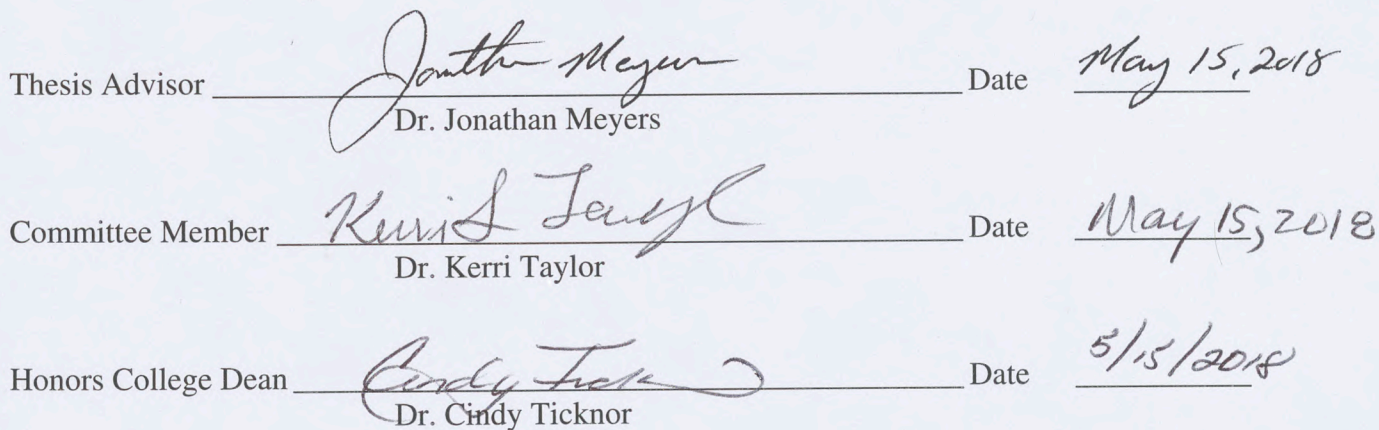 Thesis Advisor Jonathan Meyers Date May 15, 2018
Dr. Jonathan Meyers
Committee Member Kerri L Taylor Date May 15, 2018
Dr. Kerri Taylor
Honors College Dean Cindy Tick Date 5/15/2018
Dr. Cindy Ticknor